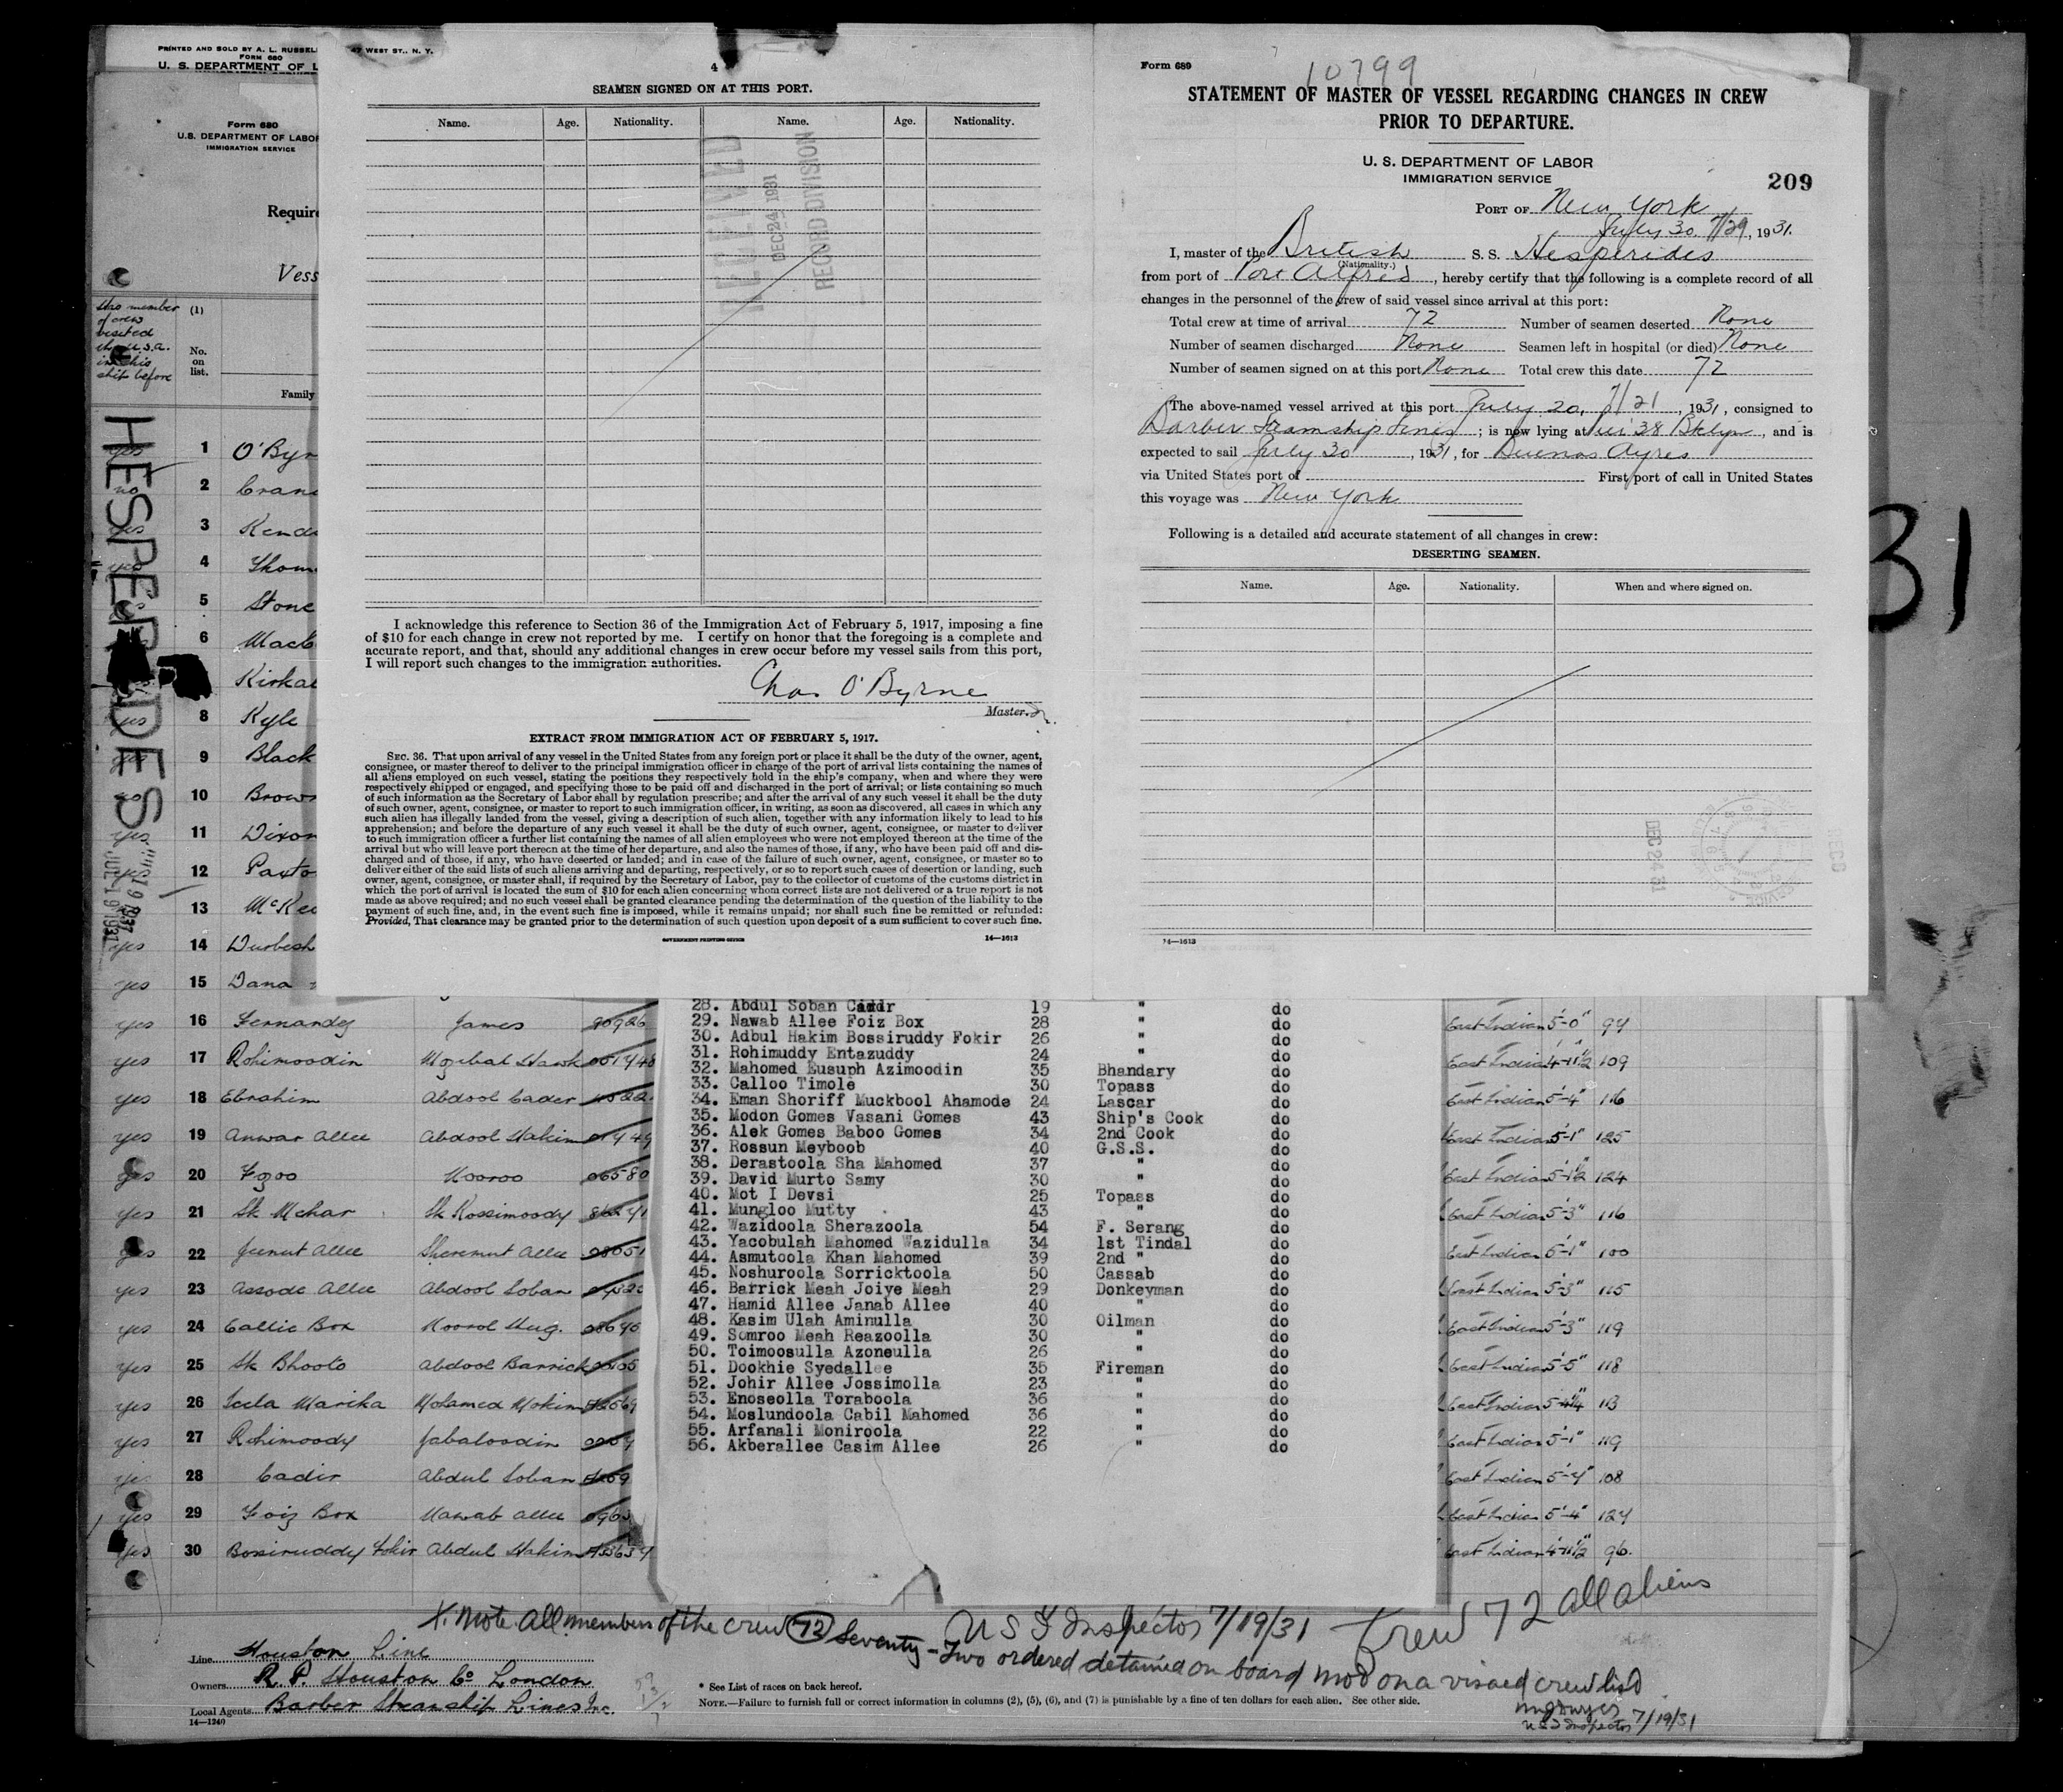 PRINTED AND SOLD BY A. L. RUSSELL
47 WEST ST., N. Y.
FORM 680
U. S. DEPARTMENT OF L
Form 680
U.S. DEPARTMENT OF LABOR
IMMIGRATION SERVICE
Require
Vess
this member
of crew
visited
the U.S.A.
in this
ship before
(1)
No.
on
list.
Family
HESPERIDES
4
SEAMEN SIGNED ON AT THIS PORT.
Name. Age. Nationality. Name. Age. Nationality.
RECEIVED
DEC 24 1931
RECORD DIVISION
I acknowledge this reference to Section 36 of the Immigration Act of February 5, 1917, imposing a fine
of $10 for each change in crew not reported by me. I certify on honor that the foregoing is a complete and
accurate report, and that, should any additional changes in crew occur before my vessel sails from this port,
I will report such changes to the immigration authorities.
Chas O'Byrne
Master.
EXTRACT FROM IMMIGRATION ACT OF FEBRUARY 5, 1917.
SEC. 36. That upon arrival of any vessel in the United States from any foreign port or place it shall be the duty of the owner, agent,
consignee, or master thereof to deliver to the principal immigration officer in charge of the port of arrival lists containing the names of
all aliens employed on such vessel, stating the positions they respectively hold in the ship's company, when and where they were
respectively shipped or engaged, and specifying those to be paid off and discharged in the port of arrival; or lists containing so much
of such information as the Secretary of Labor shall by regulation prescribe; and after the arrival of any such vessel it shall be the duty
of such owner, agent, consignee, or master to report to such immigration officer, in writing, as soon as discovered, all cases in which any
such alien has illegally landed from the vessel, giving a description of such alien, together with any information likely to lead to his
apprehension; and before the departure of any such vessel it shall be the duty of such owner, agent, consignee, or master to deliver
to such immigration officer a further list containing the names of all alien employees who were not employed thereon at the time of the
arrival but who will leave port thereon at the time of her departure, and also the names of those, if any, who have been paid off and dis-
charged and of those, if any, who have deserted or landed; and in case of the failure of such owner, agent, consignee, or master so to
deliver either of the said lists of such aliens arriving and departing, respectively, or so to report such cases of desertion or landing, such
owner, agent, consignee, or master shall, if required by the Secretary of Labor, pay to the collector of customs of the customs district in
which the port of arrival is located the sum of $10 for each alien concerning whom correct lists are not delivered or a true report is not
made as above required; and no such vessel shall be granted clearance pending the determination of the question of the liability to the
payment of such fine, and, in the event such fine is imposed, while it remains unpaid; nor shall such fine be remitted or refunded:
Provided, That clearance may be granted prior to the determination of such question upon deposit of a sum sufficient to cover such fine.
GOVERNMENT PRINTING OFFICE 14—1613
Form 689
10799
STATEMENT OF MASTER OF VESSEL REGARDING CHANGES IN CREW
PRIOR TO DEPARTURE.
U. S. DEPARTMENT OF LABOR
IMMIGRATION SERVICE
209
PORT OF New York
July 30, 7/29, 1931.
I, master of the British S. S. Hesperides
(Nationality.)
from port of Port Alfred, hereby certify that the following is a complete record of all
changes in the personnel of the crew of said vessel since arrival at this port:
Total crew at time of arrival 72 Number of seamen deserted None
Number of seamen discharged None Seamen left in hospital (or died) None
Number of seamen signed on at this port None Total crew this date 72
The above-named vessel arrived at this port July 20, 7/21, 1931, consigned to
Barber Steamship Lines; is now lying at Pier 38 Bklyn, and is
expected to sail July 30, 1931, for Buenos Ayres
via United States port of First port of call in United States
this voyage was New York
Following is a detailed and accurate statement of all changes in crew:
DESERTING SEAMEN.
Name. Age. Nationality. When and where signed on.
DEC 24 31
14—1613
31
yes 1 O'Byr
no 2 Cran
yes 3 Kend
yes 4 Thom
5 Stone
6 Mack
Kirka
yes 8 Kyle
9 Black
10 Brow
yes 11 Dixon
yes 12 Paxto
13 McKe
JUL 19 1931
yes 14 Durbesh
yes 15 Dana
yes 16 Fernandez James 90926
yes 17 Rohimoodin Mozibal Hawk
yes 18 Ebrahim Abdool Cader
yes 19 Anwar Allee Abdool Hakim
yes 20 Fozoo Nooroo 06580
yes 21 Sk Mehar Sk Rossimoody
yes 22 Jeenut Allee Sheremut Allee
yes 23 Assode Allee Abdool Soban
yes 24 Callie Box Noorol Huq.
yes 25 Sk Bhooto Abdool Barrick
yes 26 Seela Marika Mohamed Mokim
yes 27 Rohimoody Jabaloodin
yes 28 Cadir Abdul Soban
yes 29 Foiz Box Nawab Allee
yes 30 Bossiruddy Fokir Abdul Hakim
28. Abdul Soban Cadir 19 " do
29. Nawab Allee Foiz Box 28 " do
30. Adbul Hakim Bossiruddy Fokir 26 " do
31. Rohimuddy Entazuddy 24 " do
32. Mahomed Eusuph Azimoodin 35 Bhandary do
33. Calloo Timole 30 Topass do
34. Eman Shoriff Muckbool Ahamode 24 Lascar do
35. Modon Gomes Vasani Gomes 43 Ship's Cook do
36. Alek Gomes Baboo Gomes 34 2nd Cook do
37. Rossun Meyboob 40 G.S.S. do
38. Derastoola Sha Mahomed 37 " do
39. David Murto Samy 30 " do
40. Mot I Devsi 25 Topass do
41. Mungloo Mutty 43 " do
42. Wazidoola Sherazoola 54 F. Serang do
43. Yacobulah Mahomed Wazidulla 34 1st Tindal do
44. Asmutoola Khan Mahomed 39 2nd " do
45. Noshuroola Sorricktoola 50 Cassab do
46. Barrick Meah Joiye Meah 29 Donkeyman do
47. Hamid Allee Janab Allee 40 " do
48. Kasim Ulah Aminulla 30 Oilman do
49. Somroo Meah Reazoolla 30 " do
50. Toimoosulla Azoneulla 26 " do
51. Dookhie Syedallee 35 Fireman do
52. Johir Allee Jossimolla 23 " do
53. Enoseolla Toraboola 36 " do
54. Moslundoola Cabil Mahomed 36 " do
55. Arfanali Moniroola 22 " do
56. Akberallee Casim Allee 26 " do
East Indian 5'-0" 94
East Indian 4'-11½ 109
East Indian 5'-4" 116
East Indian 5'-1" 125
East Indian 5'-1½ 124
East Indian 5'-3" 116
East Indian 5'-1" 100
East Indian 5'-3" 115
East Indian 5'-3" 119
East Indian 5'-5" 118
East Indian 113
East Indian 5'-1" 119
East Indian 5'-4" 108
East Indian 5'-4" 124
East Indian 4'-11½ 96.
X. Note All members of the crew 72 Seventy-Two ordered detained on board mod on a visaed crew list
U S I Inspector 7/19/31
Crew 72 all aliens
U S I Inspector 7/19/31
Line Houston Line
Owners R. P. Houston Co London
Local Agents Barber Steamship Lines Inc.
14—1240
* See List of races on back hereof.
NOTE.—Failure to furnish full or correct information in columns (2), (5), (6), and (7) is punishable by a fine of ten dollars for each alien. See other side.